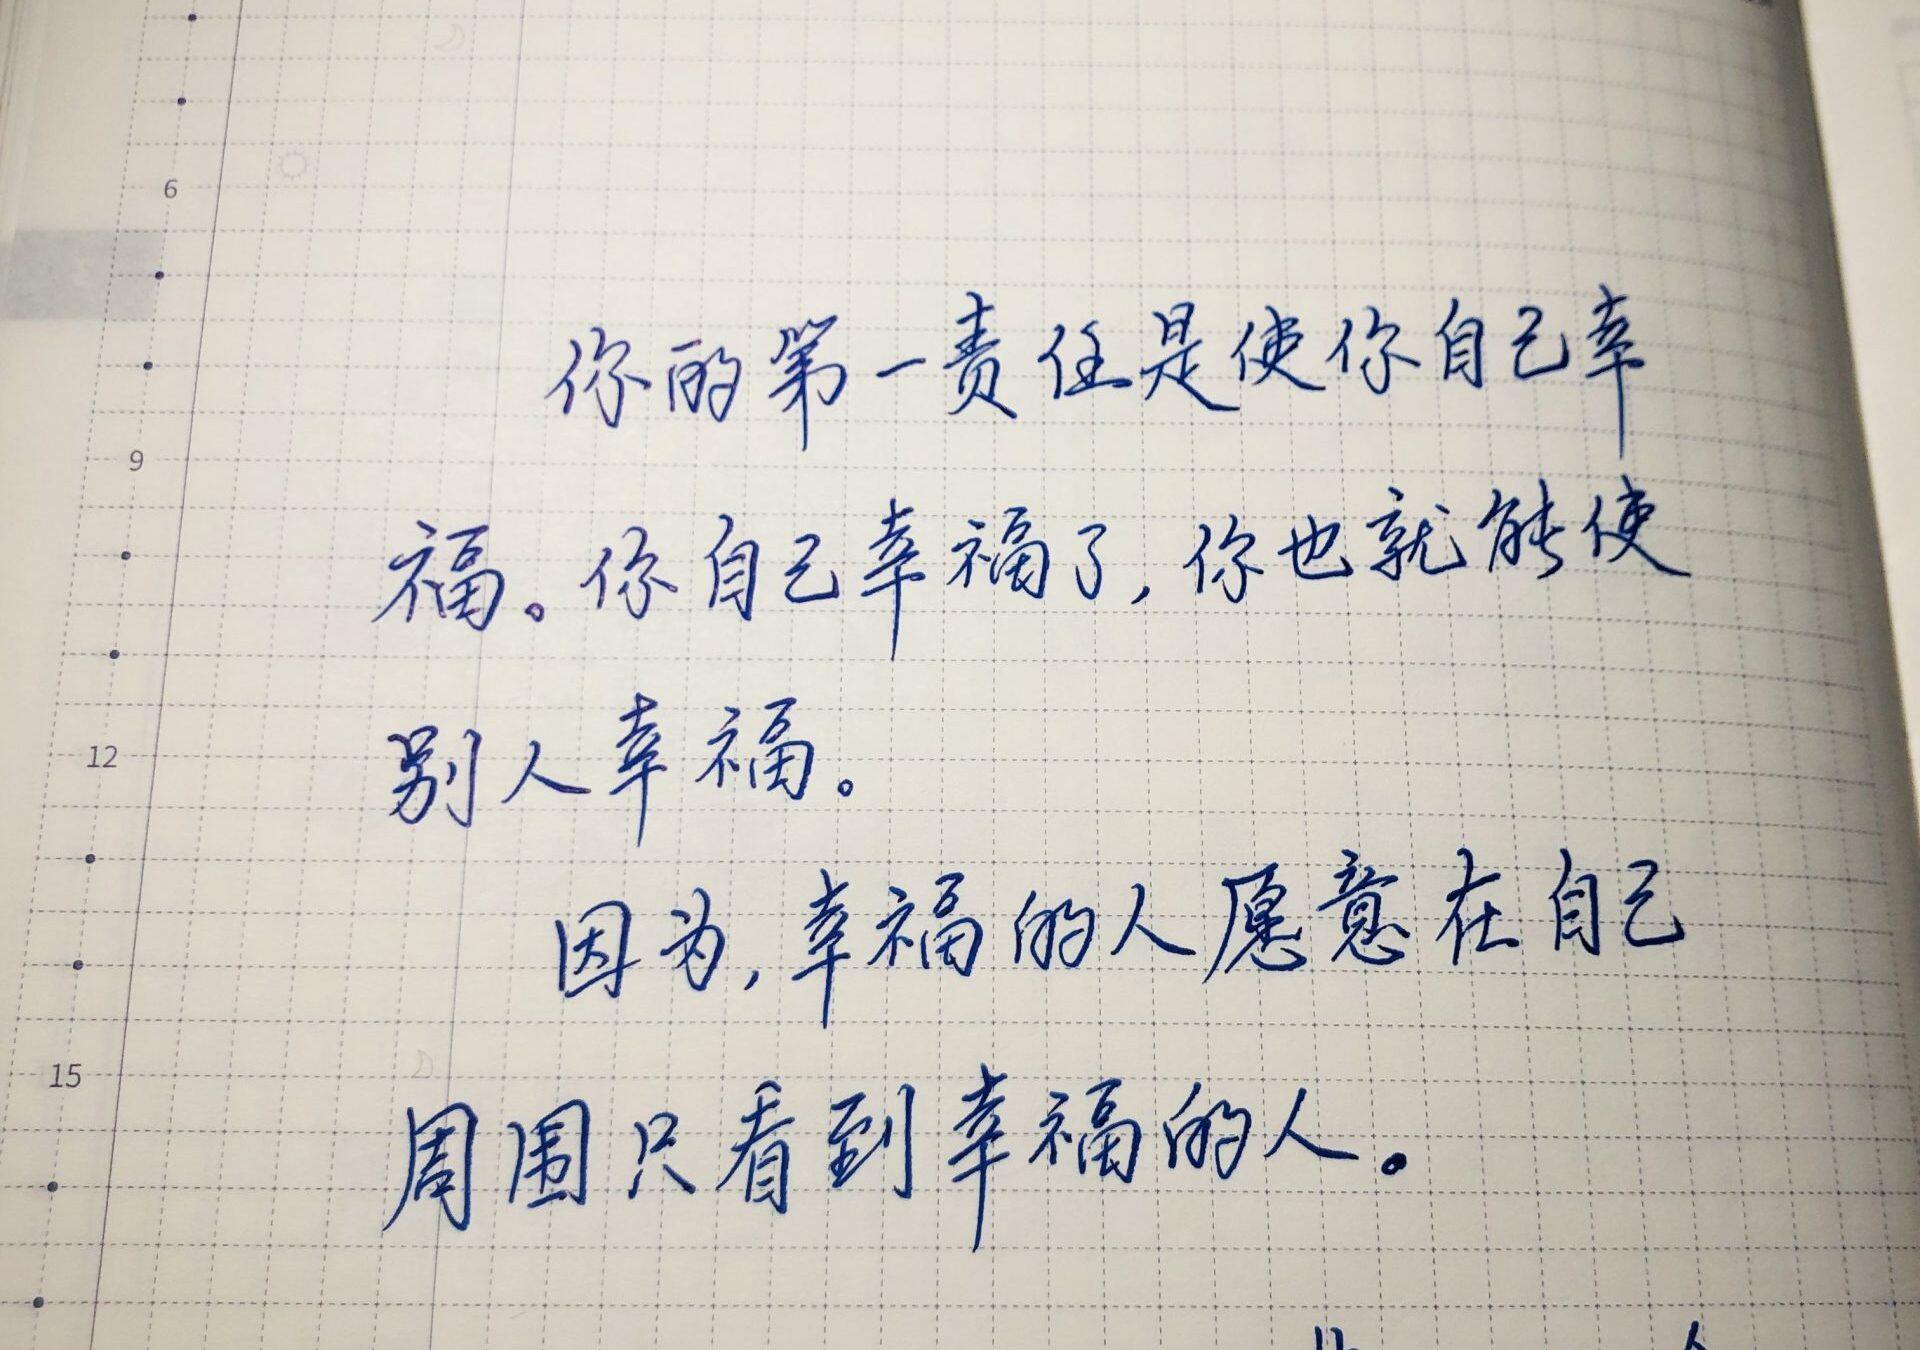 你的第一责任是使你自己幸
福。你自己幸福了,你也就能使
别人幸福。
因为,幸福的人愿意在自己
周围只看到幸福的人。
6
9
12
15